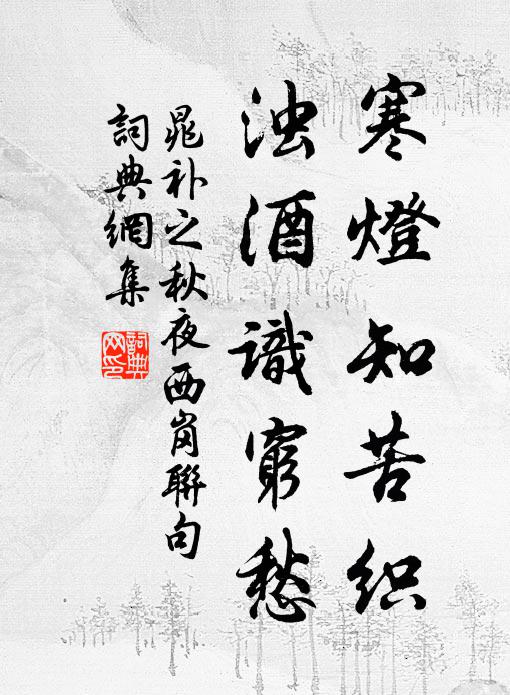 寒燈知苦织
浊酒識窮愁
晁补之秋夜西岗聯句
詞典網集
詞典
网印